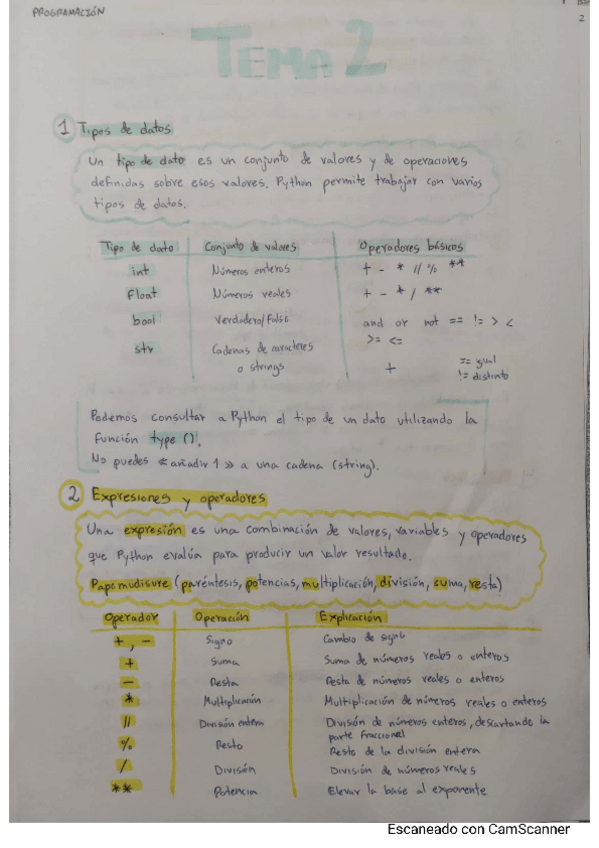 PROGRAMACIÓN
2
TEMA 2
1 Tipos de datos
Un tipo de dato es un conjunto de valores y de operaciones
definidas sobre esos valores. Python permite trabajar con varios
tipos de datos.
Tipo de dato Conjunto de valores Operadores básicos
int Números enteros + - * // % **
float Números reales + - * / **
bool Verdadero/False and or not == != > <
>= <=
str Cadenas de caracteres
o strings + == igual
!= distinto
Podemos consultar a Python el tipo de un dato utilizando la
función type ().
No puedes «añadir 1» a una cadena (string).
2 Expresiones y operadores
Una expresión es una combinación de valores, variables y operadores
que Python evalúa para producir un valor resultado.
Papomudisure (paréntesis, potencias, multiplicación, división, suma, resta)
Operador Operación Explicación
+, - Signo Cambio de signo
+ Suma Suma de números reales o enteros
- Resta Resta de números reales o enteros
* Multiplicación Multiplicación de números reales o enteros
// División entera División de números enteros, descartando la
parte fraccional
% Resto Resto de la división entera
/ División División de números reales
** Potencia Elevar la base al exponente
Escaneado con CamScanner